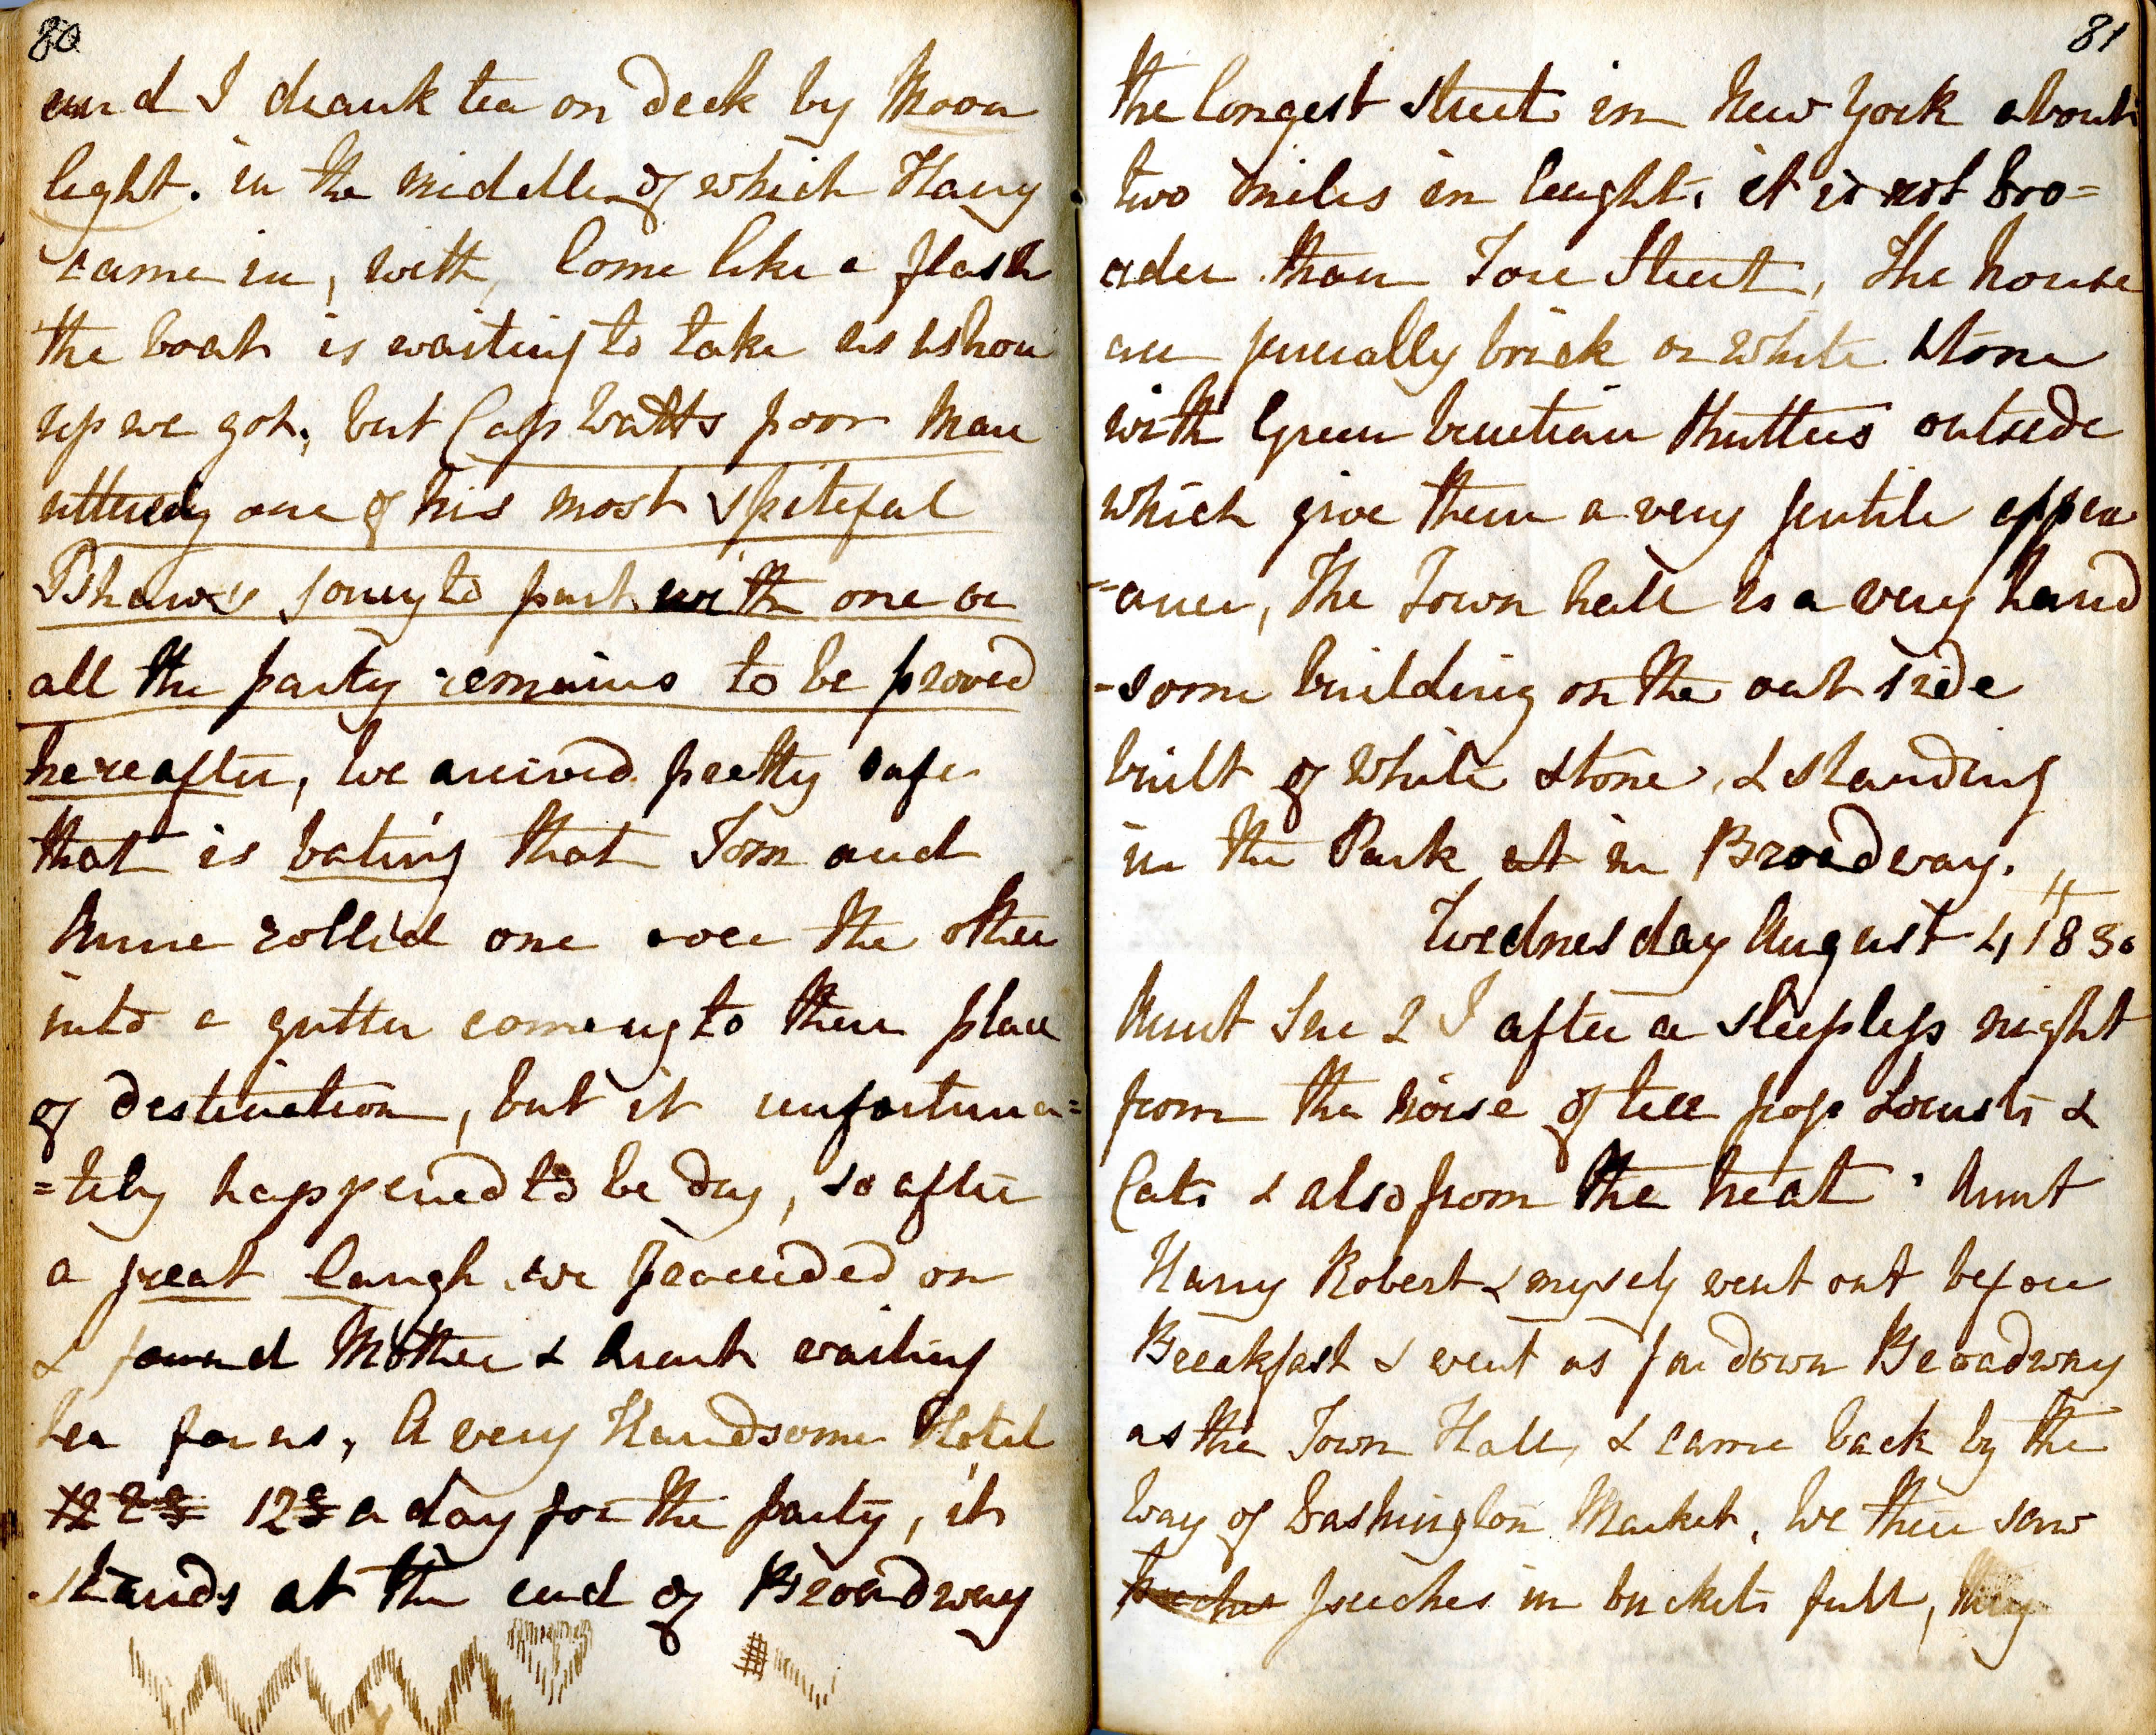 80
and I drank tea on deck by Moon
light. in the middle of which Harry
came in, with, Come like a flash
the boat is waiting to take us ashore
up we got, but Cap Watts poor Man
uttered one of his most spiteful
Pshaws sorry to part with one or
all the party remains to be proved
hereafter, We arrived pretty safe
that is bating that Tom and
Anne rolled one over the other
into a gutter coming to their place
of destination, but it unfortuna=
=tely happened to be dry, so after
a great laugh we proceeded on
& found Mother & Aunt waiting
tea for us, A very Handsome Hotel
12 2 12$ a day for the party, it
stands at the end of Broadway
81
the longest street in New York about
two miles in lenght. it is not bro=
ader than Fore Street, The house
are generally brick or white stone
with Green venetian shutters outside
which give them a very gentile appea
=ance, The Town hall is a very hand
-some building on the out side
built of white stone, & standing
in the Park at in Broadway.
Wednesday August 4th 1830
Aunt Sue & I after a sleepless night
from the noise of tree frogs Locusts &
Cats & also from the heat. Aunt
Harry Robert & myself went out before
Breakfast & went as far down Broadway
as the Town Hall, & came back by the
way of Washington Market. We there saw
peaches peaches in buckets full, they